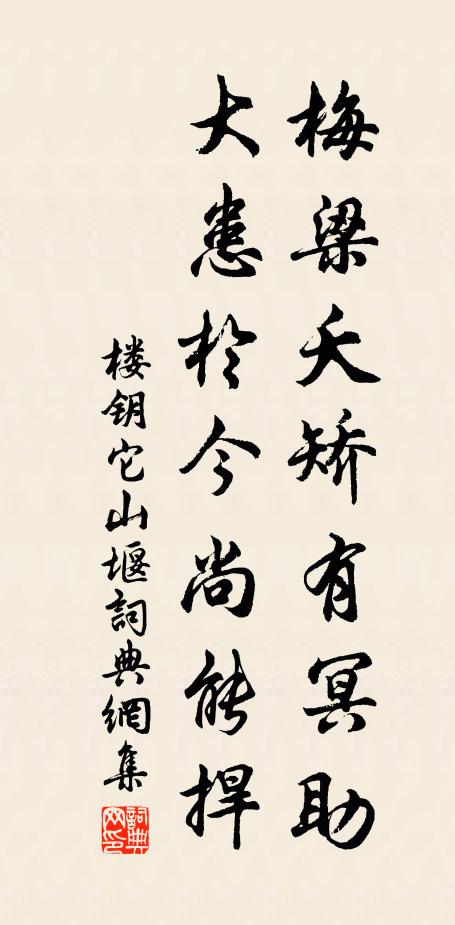 梅梁夭矫有冥助
大患於今尚能捍
楼钥它山堰詞典網集
詞典网印